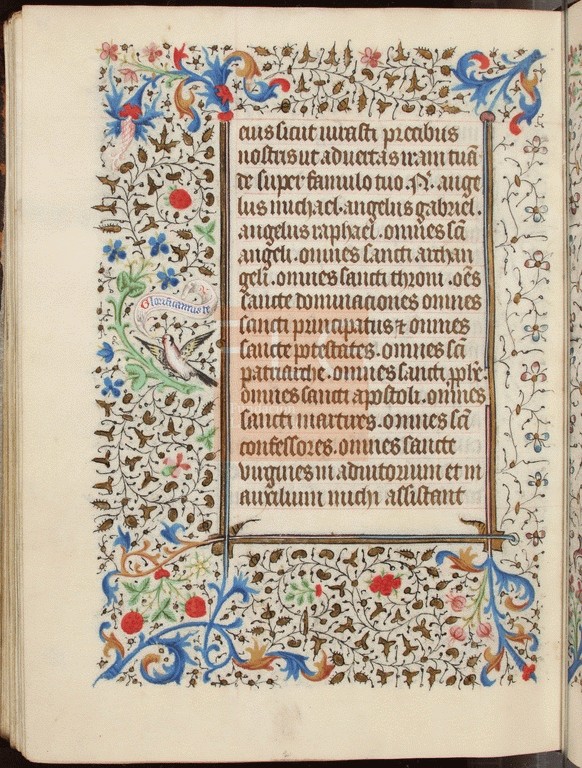 Glorificamus te
eius sicut iurasti precibus
nostris ut aduertas iram tuā
de super famulo tuo .N. ange
lus michael. angelus gabriel.
angelus raphael. omnes sc̄i
angeli. omnes sancti archan
geli. omnes sancti throni. oēs
sancte dominaciones omnes
sancti principatus ⁊ omnes
sancte potestates. omnes sc̄i
patriarche. omnes sancti ꝓphe.
omnes sancti apostoli. omnes
sancti martires. omnes sc̄i
confessores. omnes sancte
uirgines in adiutorium et in
auxilium michi assistant